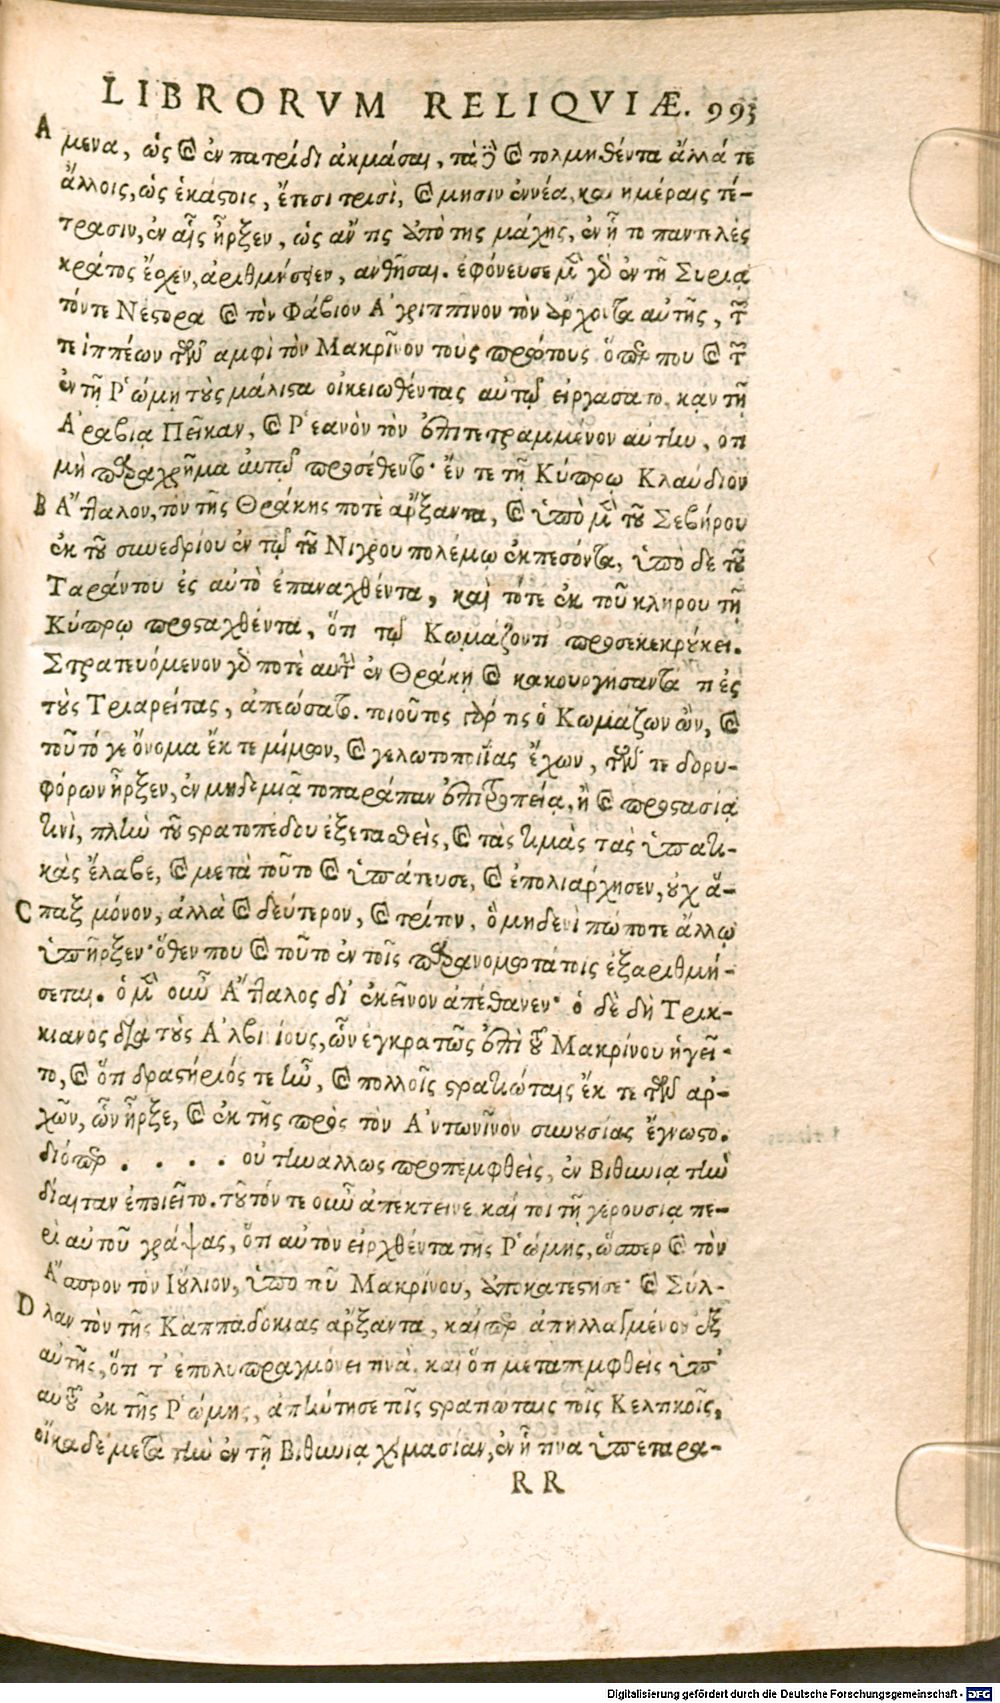 LIBRORVM RELIQVIÆ. 993
A
μενα, ὡς καὶ ἐν πατρίδι ἀκμάσαι, τὰ γὰρ καὶ τολμηθέντα ἄλλά τε
ἄλλοις, ὡς ἑκάστοις, ἔτεσι τρισὶ, καὶ μησιν ἐννέα, και ημέραις τέ-
τρασιν, ἐν αἷς ἦρξεν, ὡς ἄν τις ἀπὸ της μάχης, ἐν ᾗ το παντελὲς
κράτος ἔσχεν, ἀριθμήσειεν, ανθῆσαι. ἐφόνευσε μὲν γὰρ ἐν τῇ Συρίᾳ
τόν τε Νέστορα καὶ τὸν Φάβιον Ἀγριππῖνον τὸν ἄρχοντα αὐτῆς, τῶν
τε ἱππέων τῶν αμφὶ τὸν Μακρῖνον τοὺς πρώτους ὅπερ που καὶ τῶν
ἐν τῇ Ῥώμῃ τοὺς μάλιστα οἰκειωθέντας αὐτῷ εἰργασατο. καν τῇ
Ἀραβίᾳ Πεῖκαν, καὶ Ῥεανὸν τὸν ἐπιτετραμμένον αὐτὴν, ὅτι
μὴ παραχρῆμα αὐτῷ προσέθεντο· ἔν τε τῇ Κύπρῳ Κλαύδιον
B Ἄτταλον, τὸν τῆς Θράκης ποτὲ ἄρξαντα, καὶ ὑπὸ μὲν τοῦ Σεβήρου
ἐκ τοῦ συνεδρίου ἐν τῷ τοῦ Νίγρου πολέμῳ ἐκπεσόντα, ὑπὸ δὲ τοῦ
Ταράντου ἐς αὐτὸ ἐπαναχθέντα, καὶ τότε ἐκ τοῦ κλήρου τῇ
Κύπρῳ προσταχθέντα, ὅτι τῷ Κωμάζοντι προσεκεκρούκει.
Στρατευόμενον γὰρ ποτὲ αυτὸν ἐν Θράκῃ καὶ κακουργησαντα τι ἐς
τοὺς Τριαρείτας, ἀπεώσατο. τοιοῦτος γάρ τις ὁ Κωμάζων ὢν, καὶ
τοῦτό γε ὄνομα ἔκ τε μίμων, καὶ γελωτοποιΐας ἔχων, τῶν τε δορυ-
φόρων ἦρξεν, ἐν μηδεμιᾷ τοπαράπαν ἐπιτροπείᾳ, ἢ καὶ προστασίᾳ
τινὶ, πλὴν τοῦ στρατοπέδου ἐξετασθεὶς, καὶ τὰς τιμὰς τὰς ὑπατι-
κὰς ἔλαβε, καὶ μετὰ τοῦτο καὶ ὑπάτευσε, καὶ ἐπολιάρχησεν, οὐχ ἅ-
C παξ μόνον, ἀλλὰ καὶ δεύτερον, καὶ τρίτον, ὃ μηδενὶ πώποτε ἄλλῳ
ὑπῆρξεν· ὅθεν που καὶ τοῦτο ἐν τοῖς παρανομωτάτοις ἐξαριθμή-
σεται. ὁ μὲν οὖν Ἄτταλος δι’ ἐκεῖνον ἀπέθανεν· ὁ δὲ δὴ Τρικ-
κιανὸς διὰ τοὺς Ἀλβινίους, ὧν ἐγκρατῶς ἐπὶ τοῦ Μακρίνου ἡγεῖ-
το, καὶ ὅτι δραστήριός τε ἦν, καὶ πολλοῖς στρατιώταις ἔκ τε τῶν αρ-
χῶν, ὧν ἦρξε, καὶ ἐκ τῆς πρὸς τὸν Ἀντωνῖνον συνουσίας ἔγνωστο.
διόπερ . . . . οὐ τὴν αλλως προπεμφθεὶς, ἐν Βιθυνίᾳ τὴν
δίαιταν ἐποιεῖτο. τοῦτόν τε οὖν ἀπέκτεινε και τοι τῇ γερουσίᾳ πε-
ρὶ αὐτοῦ γράψας, ὅτι αὐτὸν εἰρχθέντα τῆς Ῥώμης, ὥσπερ καὶ τὸν
Ἄσπρον τὸν Ιούλιον, ὑπὸ τοῦ Μακρίνου, ἀποκατέστησε· καὶ Σύλ-
D λαν τὸν τῆς Καππαδοκίας ἄρξαντα, καίπερ ἀπηλλαγμένον ἐξ
αὐτῆς, ὅτι τ’ ἐπολυπραγμόνει τινὰ, καὶ ὅτι μεταπεμφθεὶς ὑπ’
αὐτοῦ ἐκ τῆς Ῥώμης, ἀπήντησε τοῖς στρατιώταις τοῖς Κελτικοῖς,
οἴκαδε μετὰ τὴν ἐν τῇ Βιθυνίᾳ χειμασίαν, ἐν ᾗ τινα ὑπεταρα-
RR
Digitalisierung gefördert durch die Deutsche Forschungsgemeinschaft - DFG